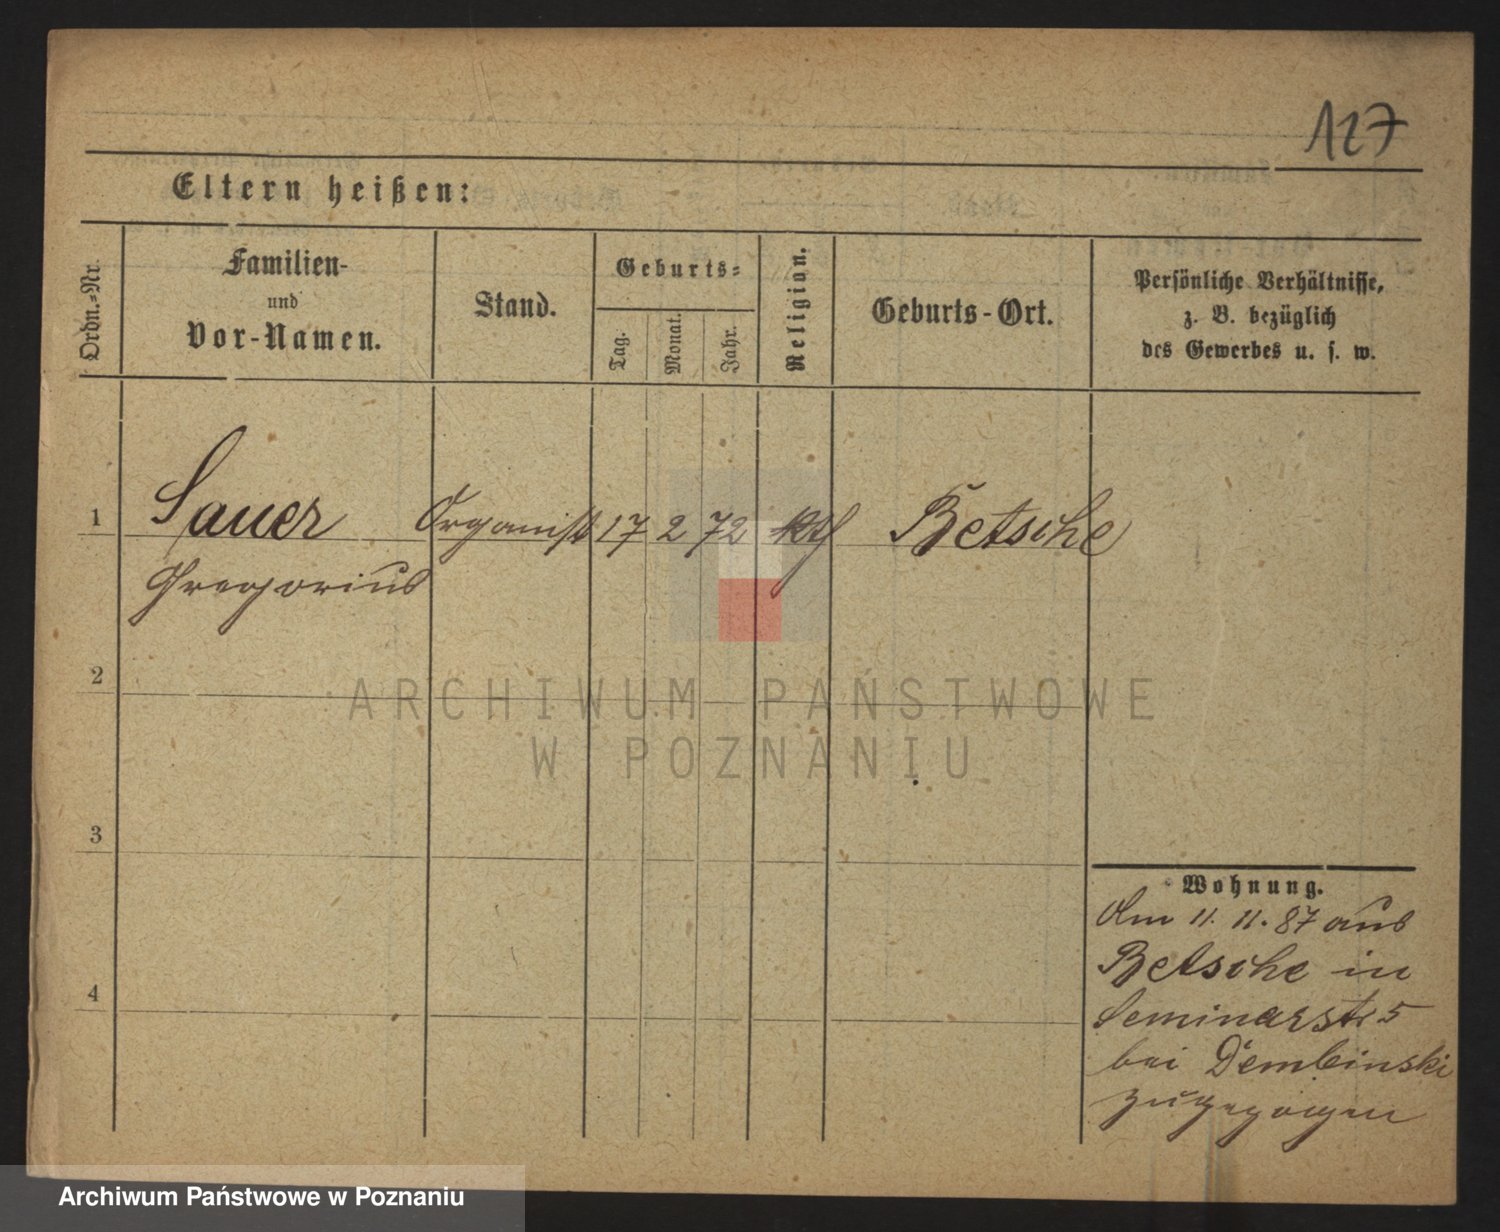 127
Eltern heißen:
Ordn.=Nr.
Familien-
und
Vor-Namen.
Stand.
Geburts=
Tag.
Monat.
Jahr.
Religion.
Geburts-Ort.
Persönliche Verhältnisse,
z. B. bezüglich
des Gewerbes u. s. w.
1 Sauer Organist 17 2 72 kth Betsche
Gregorius
2
3
4
Wohnung.
Am 11. 11. 87 aus
Betsche in
Seminarstr 5
bei Dembinski
zugezogen
ARCHIWUM PAŃSTWOWE
W POZNANIU
Archiwum Państwowe w Poznaniu